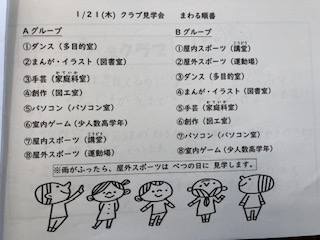 1/21(木) クラブ見学会 まわる順番
Aグループ
①ダンス(多目的室)
②まんが・イラスト(図書室)
③手芸(家庭科室)
かていか
④創作(図工室)
⑤パソコン(パソコン室)
⑥室内ゲーム(少人数高学年)
⑦屋内スポーツ(講堂)
こうどう
⑧屋外スポーツ(運動場)
Bグループ
①屋内スポーツ(講堂)
こうどう
②屋外スポーツ(運動場)
③ダンス(多目的室)
④まんが・イラスト(図書室)
⑤手芸(家庭科室)
かていか
⑥創作(図工室)
⑦パソコン(パソコン室)
⑧室内ゲーム(少人数高学年)
※雨がふったら、屋外スポーツは べつの日に 見学します。